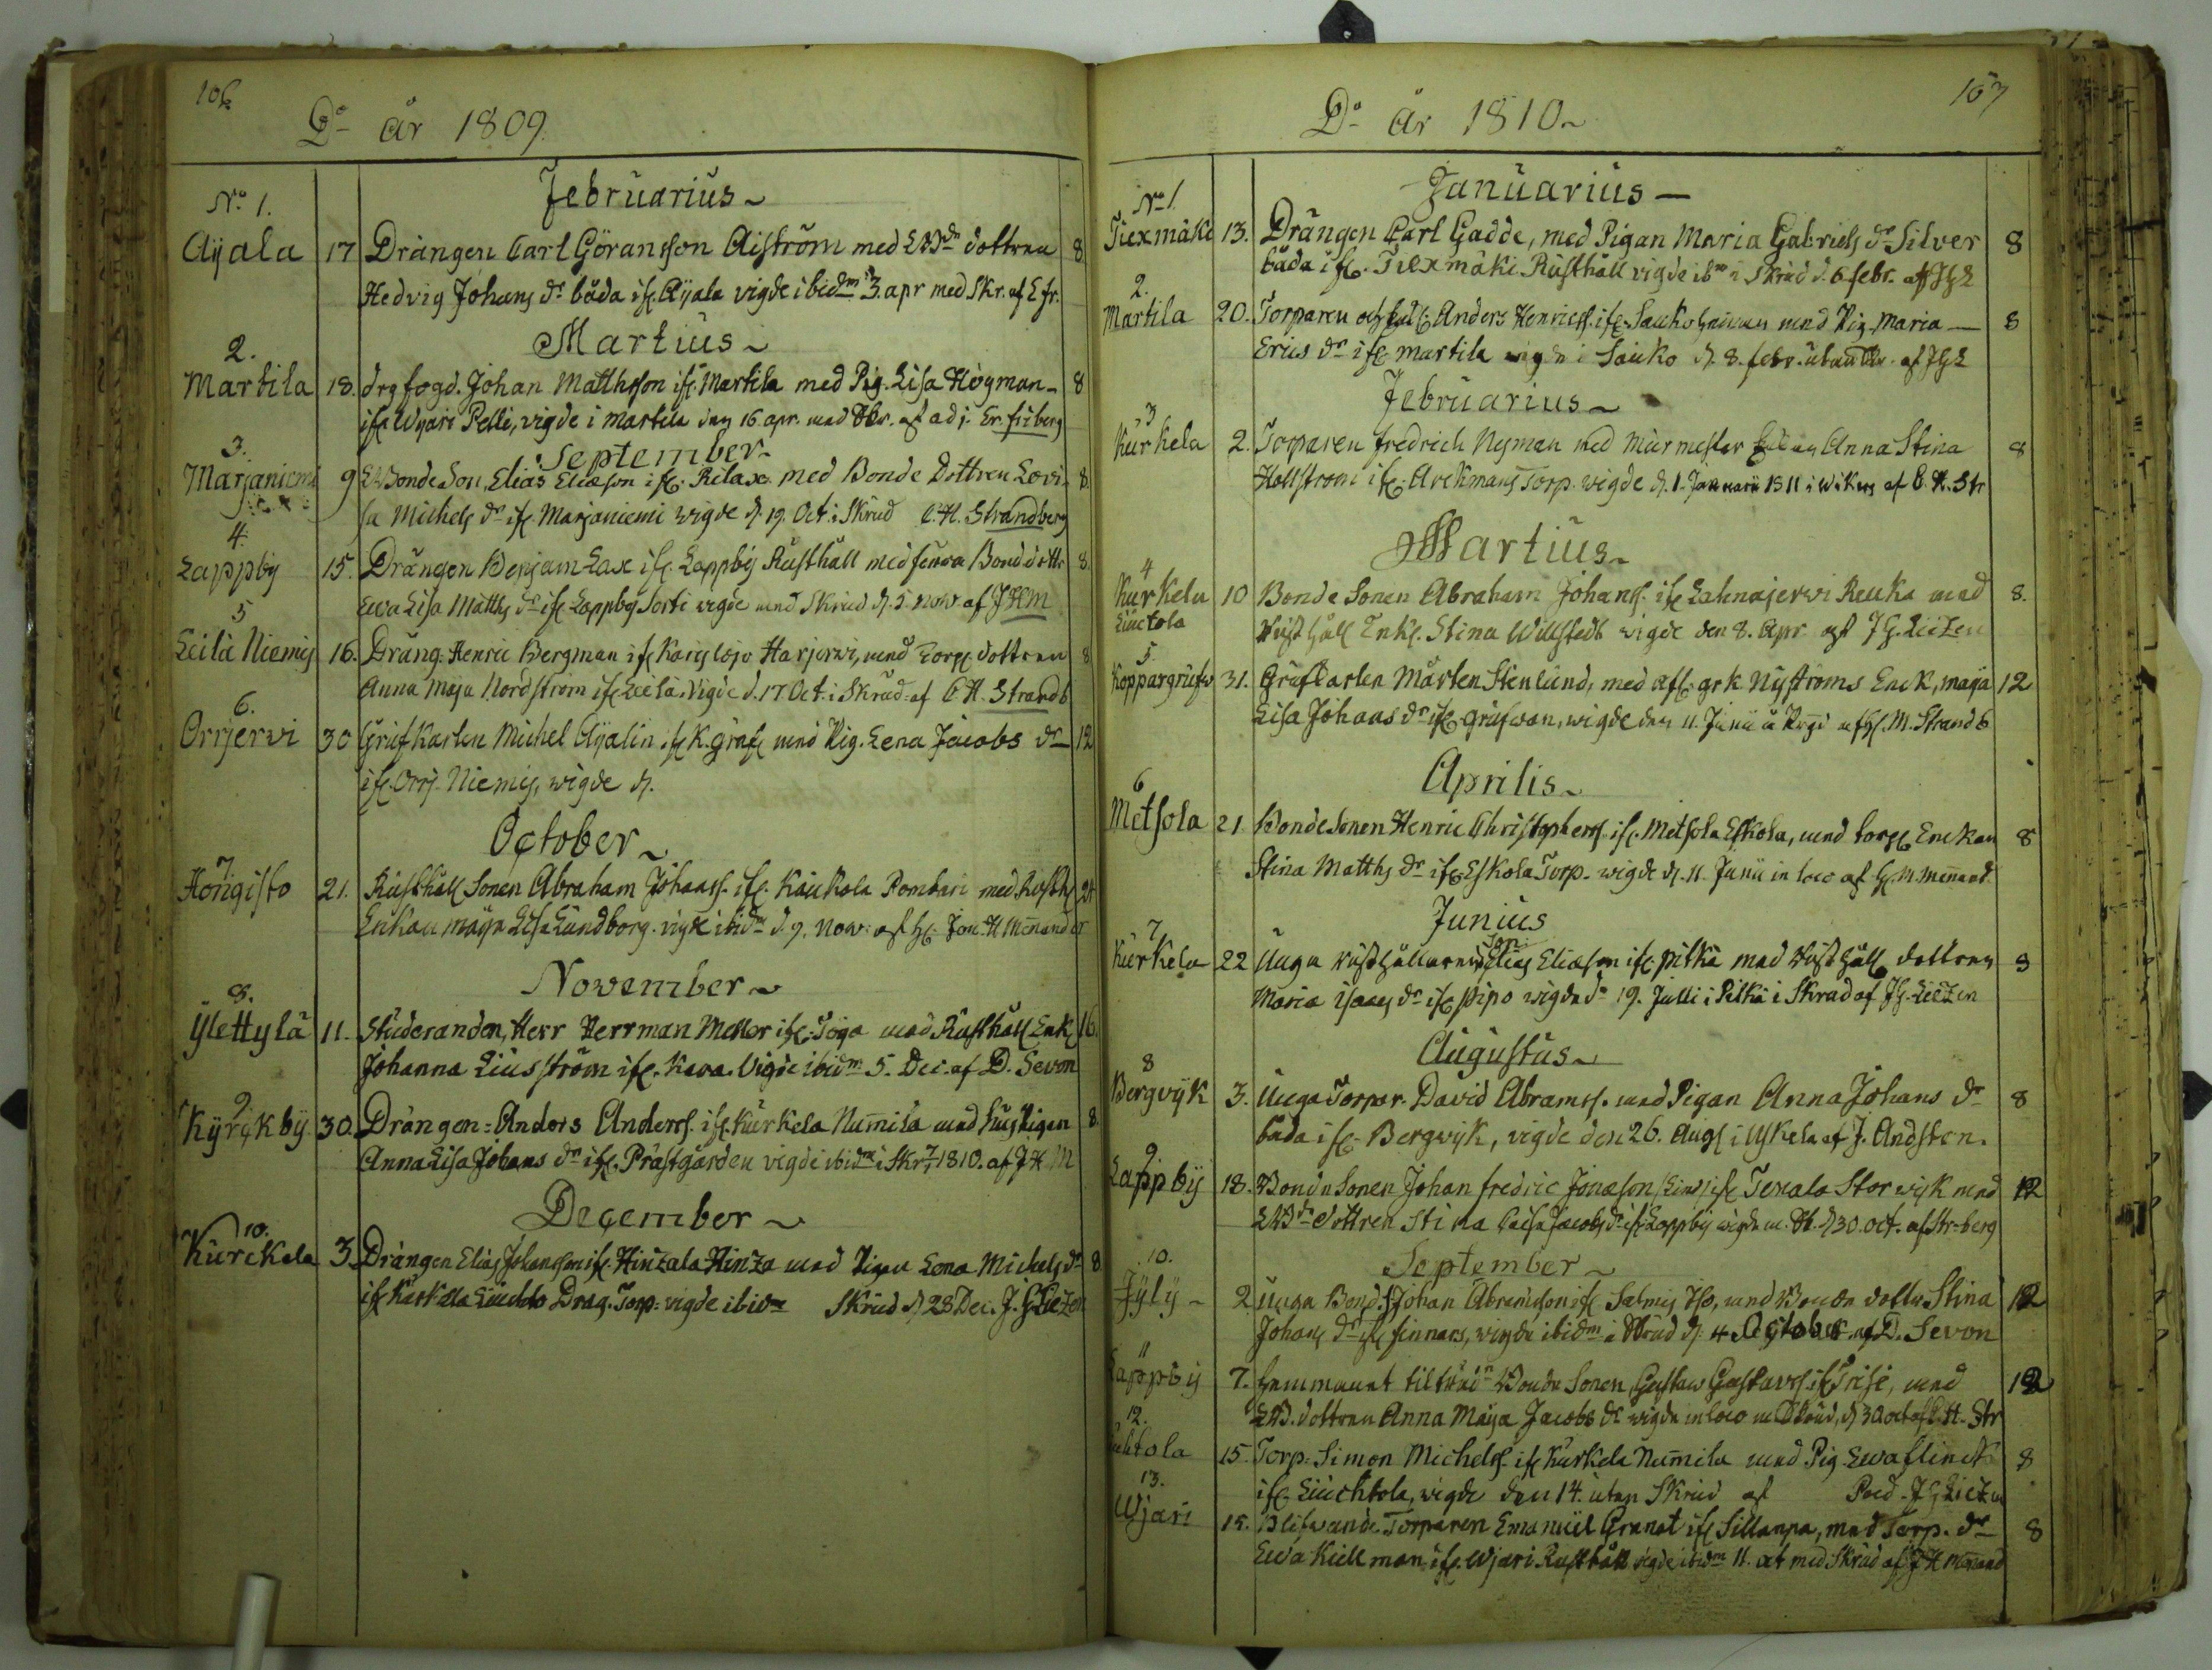 106
Do år 1809.
Februarius
No 1.
Aijala 17 Drängen Carl Göransson Aiström med LBdn dottren 8
Hedvig Johans dr båda ifr. Aijala vigde ibidm 3. apr med Skr. af E fr.
Martius
2.
Martila 18. drg fogd. Johan Matthsson ifr. Martila med Pig. Lisa Högman 8
ifr Wijari Pelli, vigde i Martila den 16. apr. med Skr. af adj. Er. friberg
September
3.
Marjaniemi 9 LBonde Son, Elias Eliæson ifr. Rilax. med Bonde Dottren Lovi- 8.
sa Michels dr ifr. Marjaniemi wigde d. 19. Oct. i Skrud C. H. Strandberg
4.
Lappby 15. Drängen Benjam Lax ifr. Lappby Rusthåll med Bond dottr 8.
Ewa Lisa Matths dr ifr Lappby Sorti vigde med Skrud d. 5. Now. af JHM
5
Leilä Niemis 16. Dräng. Henric Bergman ifr Karis lojo Harjerwi, med Torp. dottren 8
Anna Maja Nordström ifr Leilä. Vigde d. 17 Oct. i Skrud af C H. Strandb
6.
Orrjerwi 30 Grufkarlen Michel Aijalin ifr K. gruf. med Pig. Lena Jacobs dr 12
ifr. Orrj. Niemis, wigde d.
October
7.
Hongisto 21. Rusthåll Sonen Abraham Johanss. ifr. Kaukola Pomberi med Rusth. 24
Enkan maija Lisa Lundborg. vigde ibidm d. 9. Now. af H. Jon. H Menander
November
8.
Ylettylä 11. Studeranden, Herr Herrman Meller ifr. med Rusthåll Enk 16.
Johanna Liusström ifr. Kava. Vigde ibidm 5. Dec. af D. Sevon
9.
Kyrckby 30. Drängen Anders Anderss. ifr. Kurkela Numila med Pigan 8.
Anna Lisa Johans dr ifr. Prästgården vigde ibidm i Skr 1810. af J H M
December
10.
Kurckela 3. Drängen Elias Johansson ifr. Hintzala Hintza med Pigan Lena Michels dr 8
ifr Kurkela Drag. Torp: vigde ibidm Skrud d 28 Dec. J. G Lietzen
107
Do år 1810.
Januarius
No 1
Tiexmäki 13. Drängen Carl Gadde, med Pigan Maria Gabriels dr Silver 8
båda ifr. Tiexmäki Rusthåll vigde ibm i Skrud d. 6. febr. af JGL
2.
Martila 20. Torparen Anders Henricss. ifr. med Pig. Maria 8
Erics dr ifr Martila wigde i Sauko d. 8. febr. utan Skr. af JGL
Februarius
3
Kurkela 2. Torparen fredrich Nyman med Murmester Anna Stina 8
Hollstrom ifr. Arckmans Torp. wigde d. 1. Januarii 1811 i Wikers af C. H. Str
Martius
4
Kurkela 10 Bonde Sonen Abraham Johans. ifr Lahnajerwi Reuka med 8.
Liuctola Rusthåll Enk. Stina Willstedt wigde den 8. Apr. af J G. Lietzen
5
Koppargrufw 31. Grufkarlen Mårten Stenlund, med afl. grk Nyströms Enck, maja 12
Lisa Johans dr ifr. grufwan, wigde den 11. Junii af H. M. Strandb
Aprilis
6
Metsola 21 Bonde Sonen Henric Christopherss. ifr. Metsola Eskola, med torp. Enckan 8
Stina Matths dr ifr. Eskola Torp. wigde d. 11. Junii in loco af H. M. Menand.
Junius
7.
Kurkela 22 Unga Rusthållaren Son Elias Eliæson ifr Pitkä med Rusthåll dottren 8
Maria Isaacs dr ifr Pipo wigde dn 19. Julii i Pitkä i Skrud af JG. Lietzen
Augustus
8
Bergwijk 3. Unga Torpar. David Abramss. med Pigan Anna Johans dr 8
båda ifr. Bergwijk, vigde den 26. Aug. i Uskela af J. Andsten.
9.
Lappby 18. Bonde Sonen Johan fredric Jonæson ifr Tenala Storwijk med 12
LBdn dottren Stina Caisa Jacobs dr ifr Lappby wigde m. Sk. d 30. oct. af Str-berg
September
10.
Jyly 2 Unga Bond. S. Johan Abramsson ifr Salmis Iso, med Bonde dottr Stina 12
Johans dr ifr finnars, wigde ibidm i Skrud d. 4 October af D. Sevon
11
Lappby 7. Hemmanet Bonde Sonen Gustaw Gustavss. ifr Trisi, med 12
LBd. dottren Anna Maija Jacobs dr wigde in loco m Skrud, d 30 oct af C. H. Str
12.
Luhtola 15. Torp. Simon Michelss. ifr Kurkela Numila med Pig. Ewa flinck 8
ifr. Liuchtola, wigde den 14. utan Skrud af J G Lietzen
13.
Wjari 15. Blifwande Torparen Emanuel Granat ifr Sillanpä, med Torp. dr 8
Ewa Kiellman ifr. Wjari Rusthåll vigde ibidm 11. oct med Skrud af J H Menand